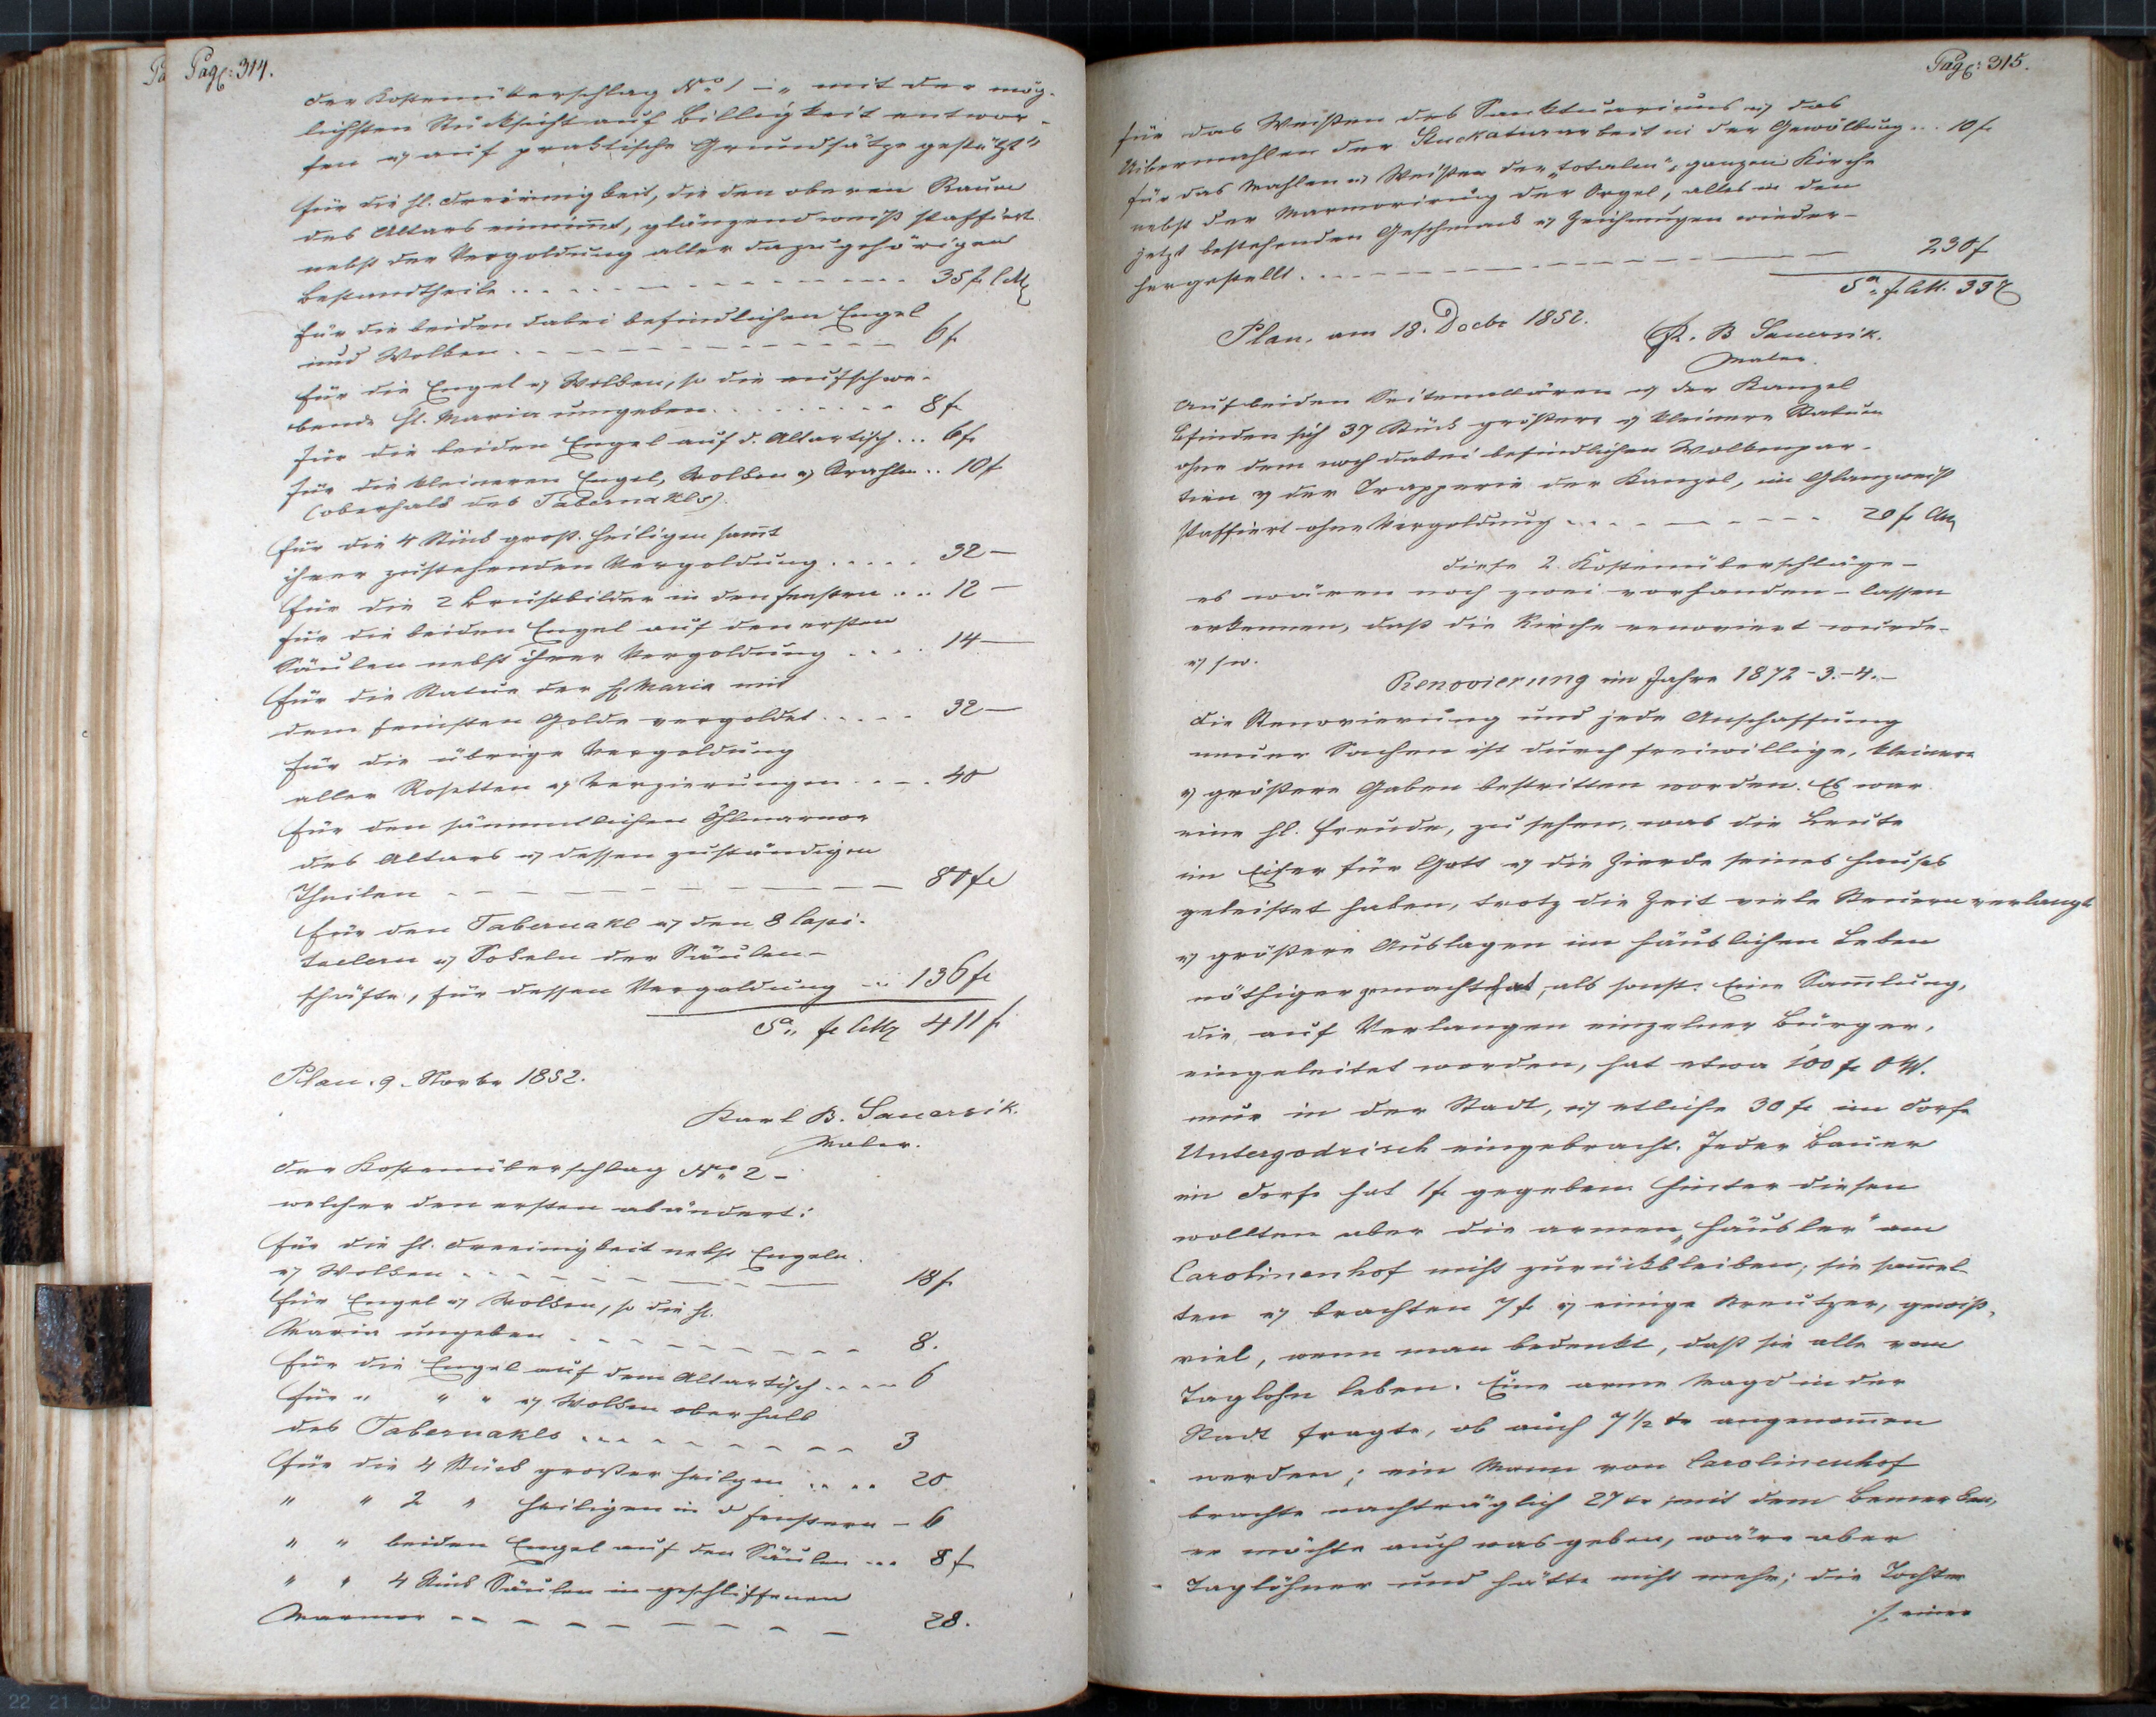 Pag: 314.
Der Kostenüberschlag No 1 – „ mit der mög-
lichsten Rücksicht auf Billigkeit entwor-
fen u auf praktische Grundsätze gestützt“
Für die hl. Dreieinigkeit, die den oberen Raum
des Altars einnimmt, glänzend weiß staffiert
nebst der Vergoldung aller dazugehörigen
Bestandtheile . . . . 35 f CM
Für die beiden dabei befindlichen Engel
und Wolken . . . 6 f
Für die Engel u Wolken, so die aufschwe-
bende hl. Maria umgeben . . . . 8 f
Für die beiden Engel auf d. Altartisch . . . 6 f
Für die kleineren Engel, Wolken u Strahlen . . 10 f
(oberhalb des Tabernakls).
Für die 4 Stück groß. Heiligen samt
ihrer zustehenden Vergoldung . . . . . 32 –
Für die 2 Brustbilder in den Fenstern . . . 12 –
Für die beiden Engel auf den ersten
Säulen nebst ihrer Vergoldung . . . . 14 –
Für die Statue der h Maria mit
dem feinsten Golde vergoldet . . . . . 32 –
Für die übrige Vergoldung
aller Rosetten u Verzierungen . . – . 40
Für den sämmtlichen Öhlmarmor
des Altars u dessen zuständigen
Theilen – – – 80 f
Für den Tabernakl u den 8 Capi-
taelern u Sokeln der Säulen-
schäfte, für dessen Vergoldung . . 136 f
Sa f CM 411 f
Plan. 9. Novbr 1852.
Karl B. Sauersik.
Maler.
Der Kostenüberschlag No 2 –
welcher den ersten abändert:
Für die hl. Dreieinigkeit nebst Engeln
u Wolken – – – 18 f
Für Engel u Wolken, so die hl.
Maria umgeben – – – 8.
Für die Engel auf dem Altartisch . . . . 6
Für „ „ „ u Wolken oberhalb
des Tabernakls . . . – – – 3
Für die 4 Stück großer Heilgen . . . . 20
„ „ 2 „ Heiligen in d Fenstern – 6
„ „ beiden Engel auf den Säulen . . . 8 f
„ „ 4 Stück Säulen in geschliffenen
Marmor – – – 28.
Pag: 315.
Für das Weißen des Sanktuariums u das
Uibermahlen der Stuckaturarbeit in der Gewölbung . . . 10 f
Für das Mahlen u Weißen der „totalen“, ganzen Kirche
nebst der Marmorirung der Orgel, alles in den
jetzt bestehenden Geschmack u Zeichnungen wieder-
hergestellt . . . 230 f
Sa f CM. 337
Plan. am 13. Decbr 1852.
K. B Sauersik.
Maler.
Auf beiden Seitenaltären u der Kanzel
befinden sich 37 Stück größere u kleinere Statuen
ohne dem noch dabei befindlichen Wolkenpar-
tien u der Drapperie der Kanzel, in Glanzweiß
staffiert ohne Vergoldung . . . 20 f CM
Diese 2 Kostenüberschläge –
es wären noch zwei vorhanden – lassen
erkennen, daß die Kirche renoviert wurde.
u sw.
Renovierung im Jahre 1872-3.-4.–
Die Renovierung und jede Anschaffung
neuer Sachen ist durch freiwillige, kleinere
u größere Gaben bestritten worden. Es war
eine hl. Freude, zu sehen, was die Leute
im Eifer für Gott u die Zierde seines Hauses
geleistet haben, trotz die Zeit viele Steuern verlangt
u größere Auslagen im häuslichen Leben
nöthiger gemacht hat, als sonst. Eine Samlung,
die, auf Verlangen einzelner Bürger,
eingeleitet worden, hat etwa 100 f ÖW.
nur in der Stadt, u etliche 30 f im Dorfe
Untergodrisch eingebracht. Jeder Bauer
im Dorfe hat 1 f gegeben. Hinter diesen
wollten aber die armen „Häusler“ am
Carolinenhof nicht zurückbleiben; sie samel
ten u brachten 7 f u einige Kreutzer, gewiß
viel, wenn man bedenkt, daß sie alle vom
Taglohn leben. Eine arme Magd in der
Stadt fragte, ob auch 7 1/2 kr angenomen
werden; ein Mann von Carolinenhof
brachte nachträglich 27 kr mit dem Bemerken,
er möchte auch was geben, wäre aber
Taglöhner und hätte nicht mehr; die Tochter
./. einer